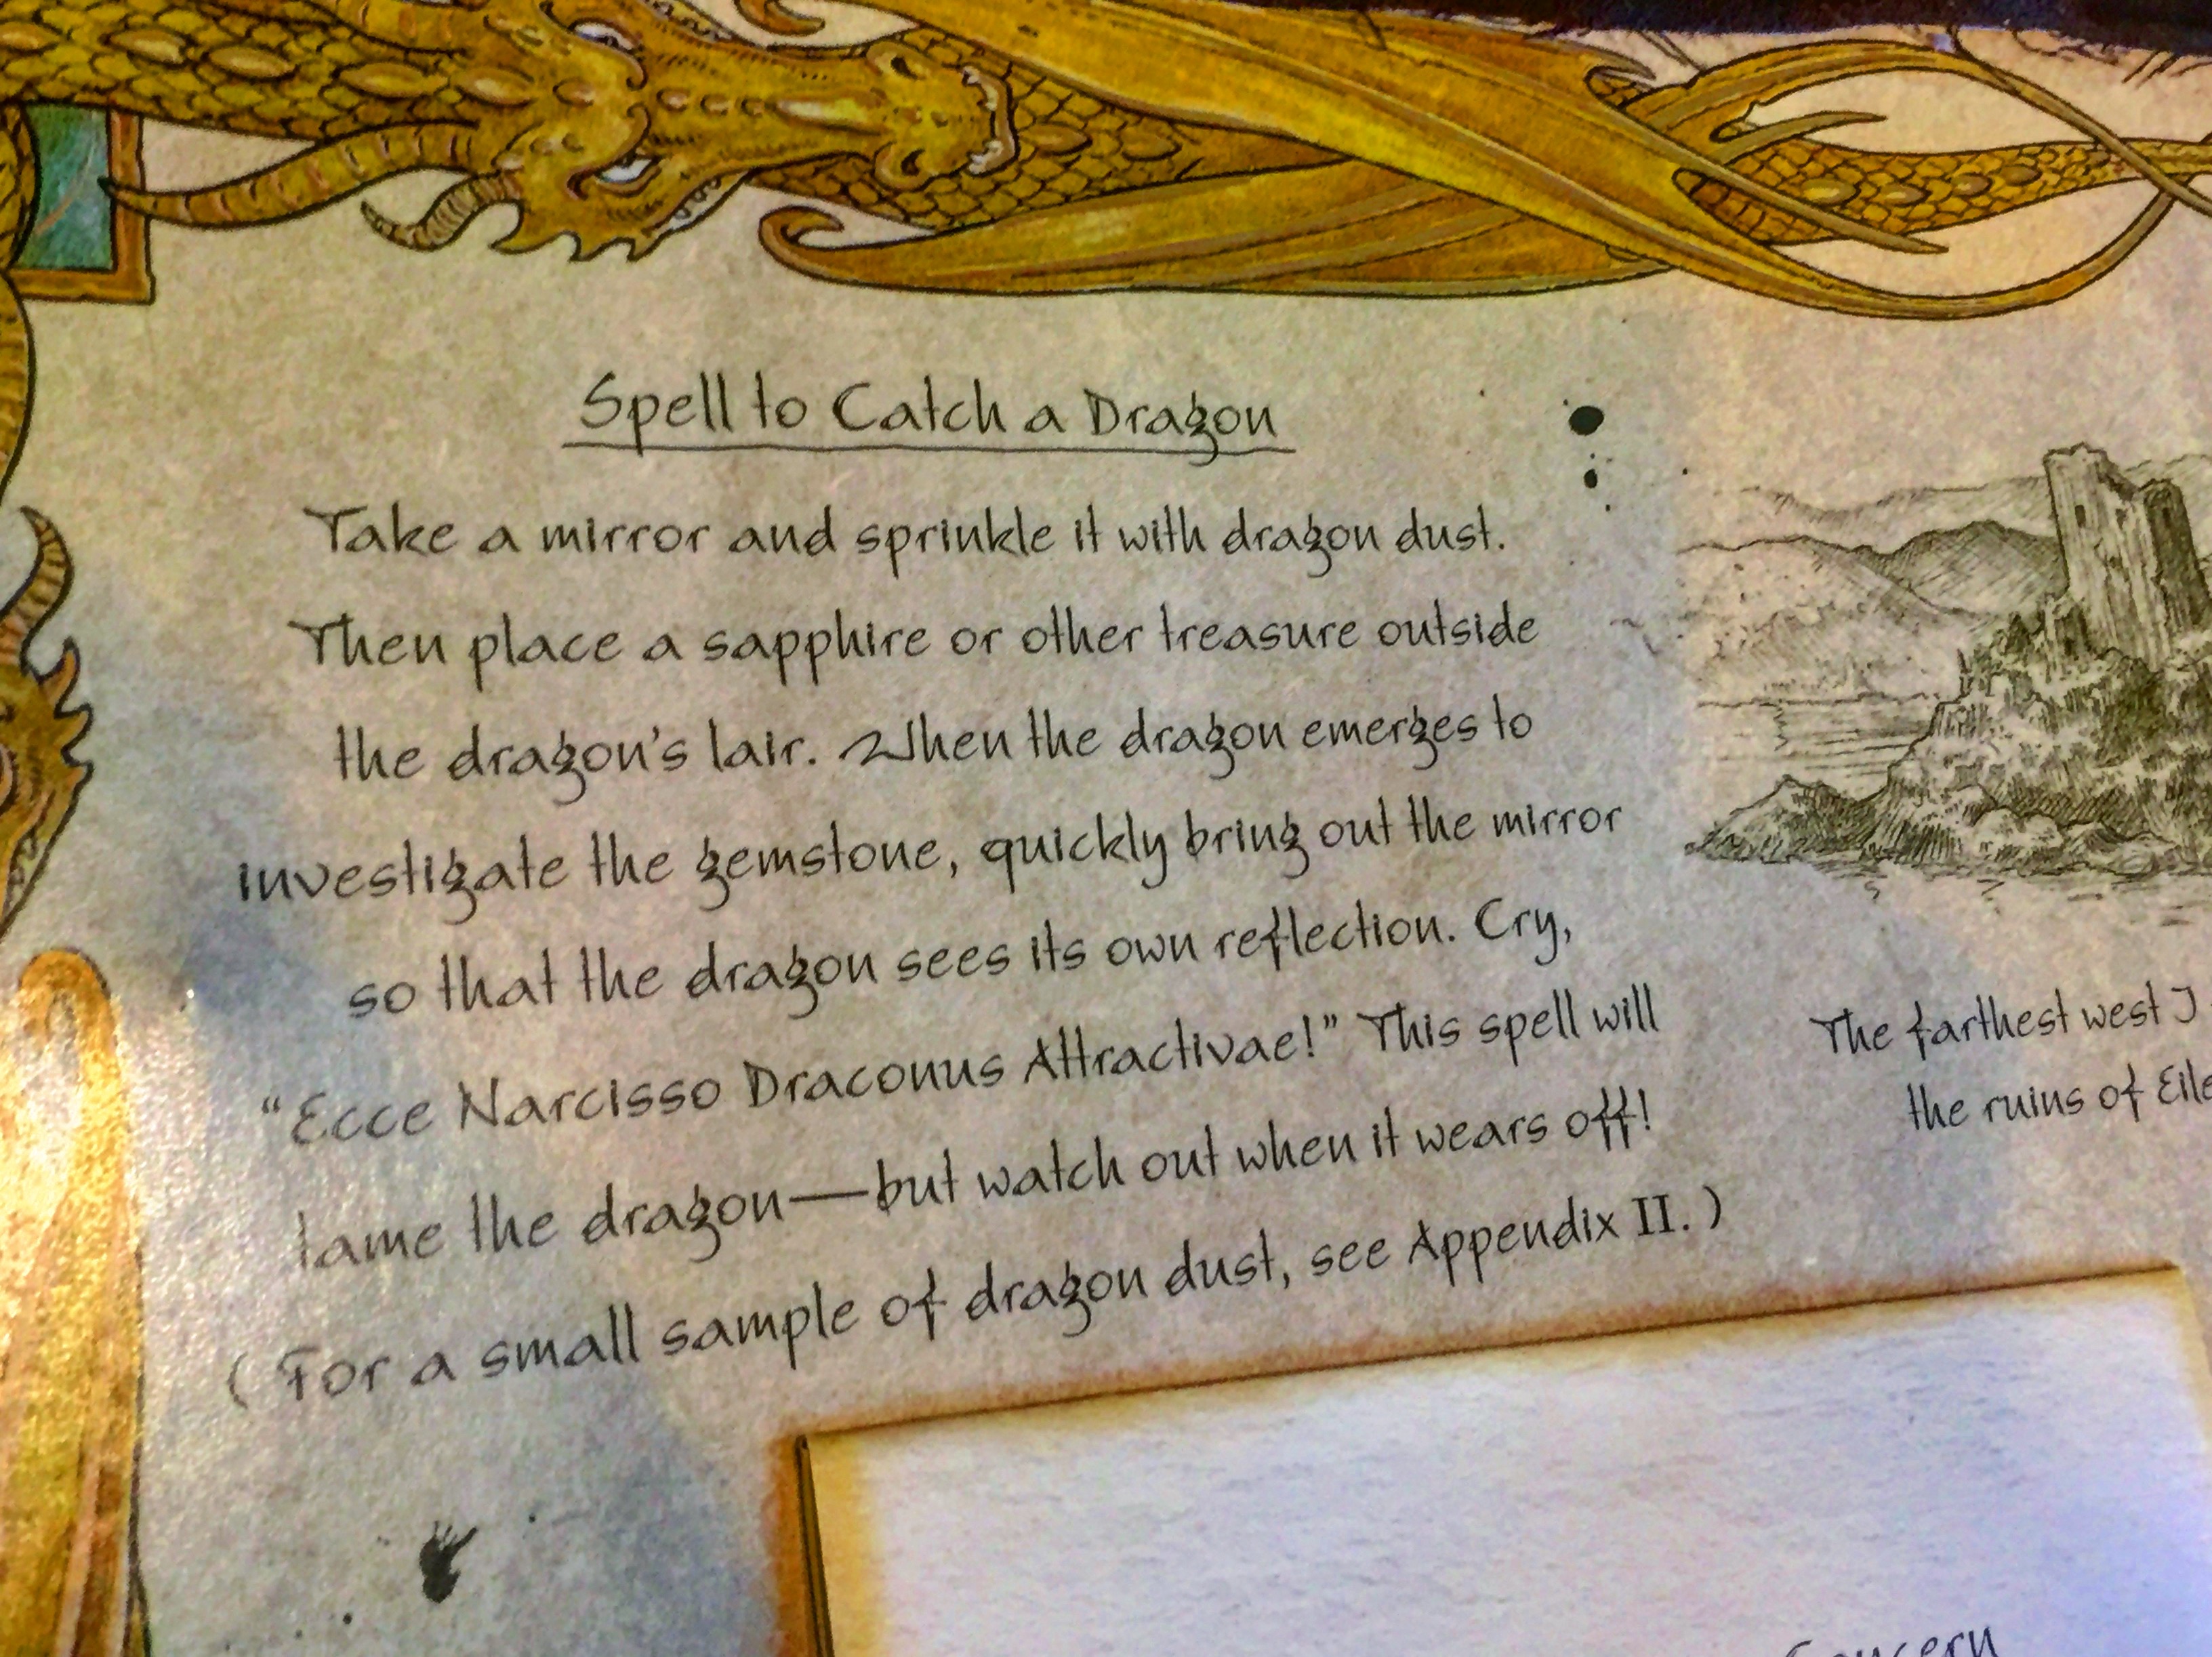 Spell to Catch a Dragon
Take a mirror and sprinkle it with dragon dust.
Then place a sapphire or other treasure outside
the dragon's lair. When the dragon emerges to
investigate the gemstone, quickly bring out the mirror
so that the dragon sees its own reflection. Cry,
"Ecce Narcisso Draconus Attractivae!" This spell will
tame the dragon—but watch out when it wears off!
(For a small sample of dragon dust, see Appendix II.)
The farthest west I
the ruins of